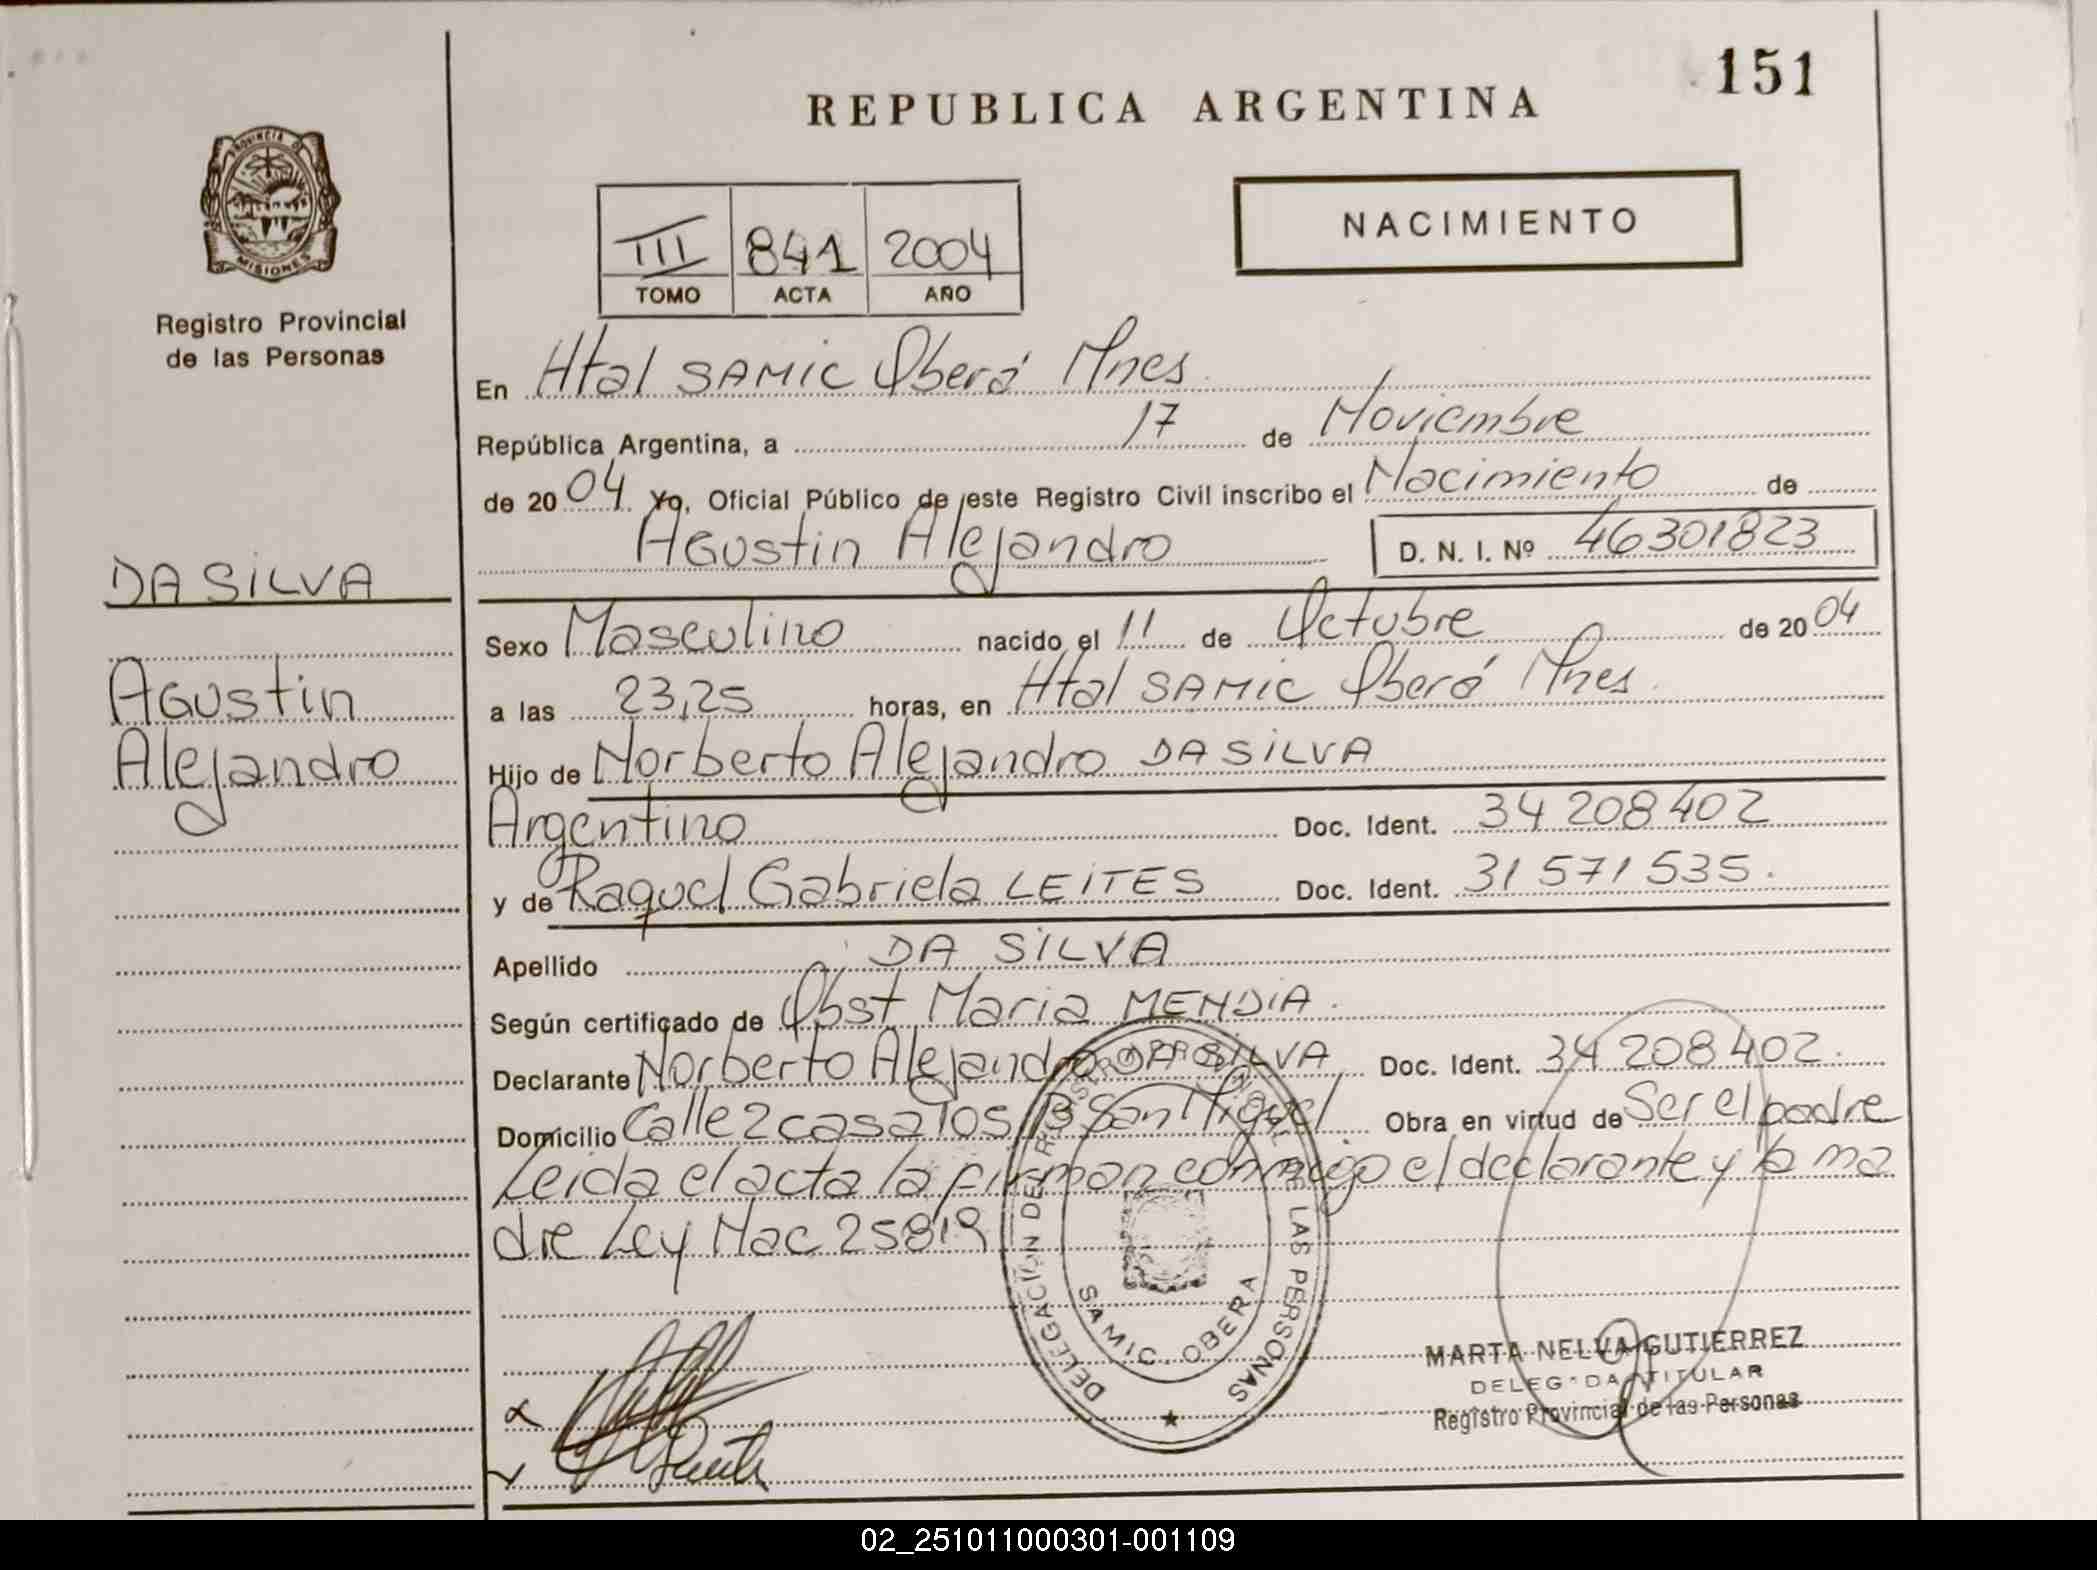 151
REPUBLICA ARGENTINA
PROVINCIA DE
MISIONES
Registro Provincial
de las Personas
NACIMIENTO
III 841 2004
TOMO ACTA AÑO
En Htal SAMIC Oberá Mnes
República Argentina, a 17 de Noviembre
de 2004 Yo, Oficial Público de este Registro Civil inscribo el Nacimiento de
Agustin Alejandro D. N. I. Nº 46301823
DA SILVA
Agustin
Alejandro
Sexo Masculino nacido el 11 de Octubre de 2004
a las 23,25 horas, en Htal SAMIC Oberá Mnes.
Hijo de Norberto Alejandro DA SILVA
Argentino Doc. Ident. 34 208 402
y de Raquel Gabriela LEITES Doc. Ident. 31 571 535.
Apellido DA SILVA
Según certificado de Obst Maria MENDIA.
Declarante Norberto Alejandro DA SILVA Doc. Ident. 34 208 402.
Domicilio Calle 2 casa 105 B San Miguel. Obra en virtud de Ser el padre
Leida el acta la firman conmigo el declarante y la ma
dre Ley Nac 25819
DELEGACIÓN DEL REGISTRO PROVINCIAL DE LAS PERSONAS
SAMIC OBERA
MARTA NELVA GUTIERREZ
DELEGADA TITULAR
Registro Provincial de las Personas
02_251011000301-001109